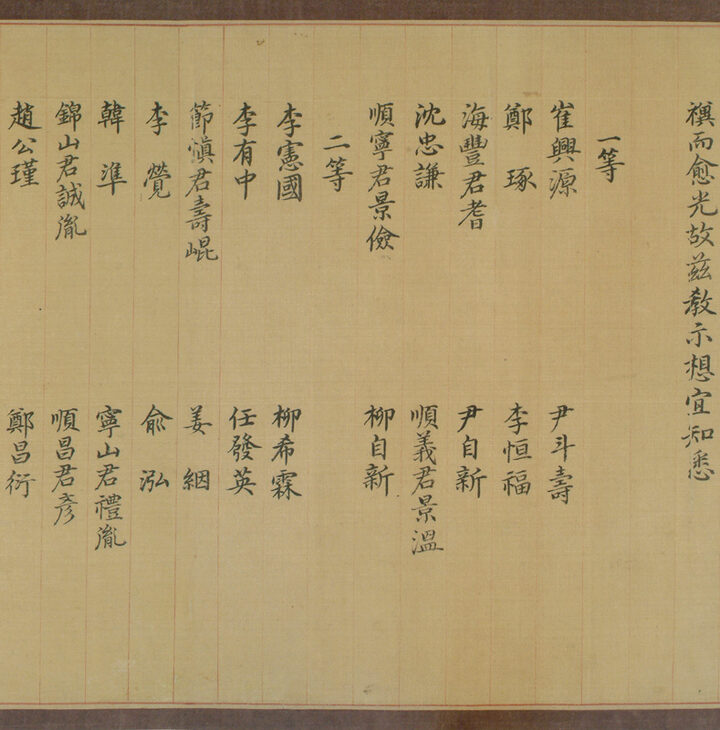 禩而愈光故玆敎示想宜知悉
一等
崔興源 尹斗壽
鄭琢 李恒福
海豐君耆 尹自新
沈忠謙 順義君景溫
順寧君景儉 柳自新
二等
李憲國 柳希霖
李有中 任發英
節愼君壽崐 姜絪
李覮 兪泓
韓準 寧山君禮胤
錦山君誠胤 順昌君彥
趙公瑾 鄭昌衍